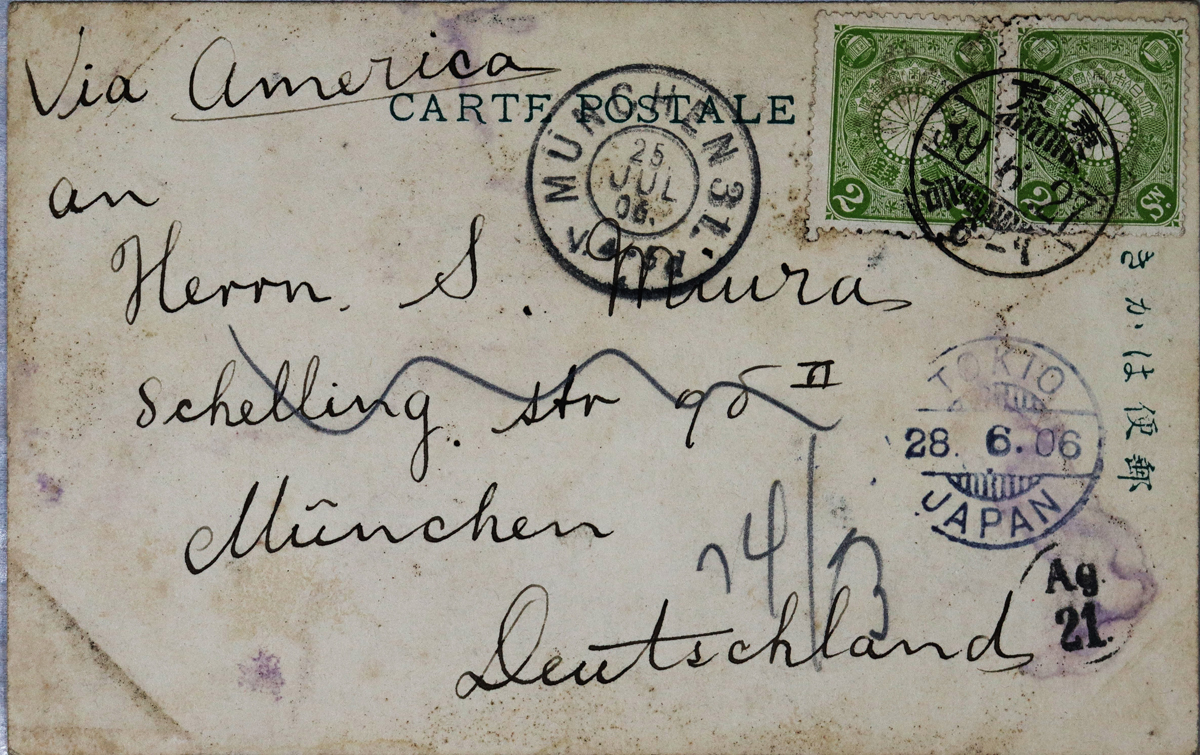 Via America
CARTE POSTALE
an
Herrn. S. Miura
Schelling. str 95 II
München
Deutschland
MÜNCHEN 31.
25
JUL
06.
2
2
東京
39.6.27
TOKIO
28. 6. 06
JAPAN
きかは便郵
Ag.
21